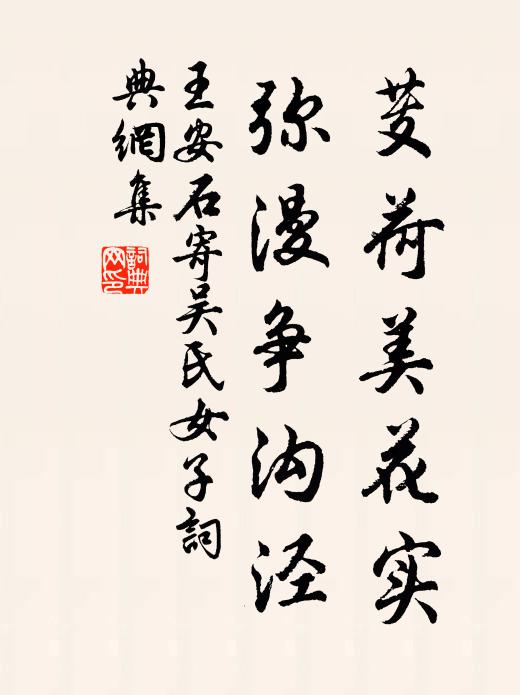 芰荷美花实
弥漫争沟泾
王安石寄吴氏女子詞
典網集
詞典网印